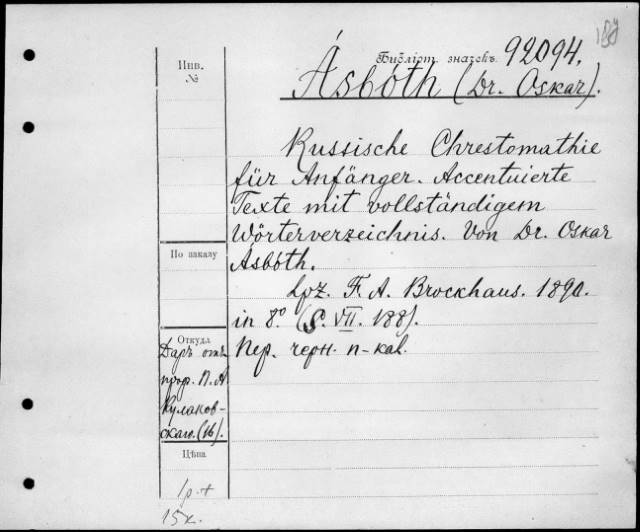 Инв.
№
Библіот. значекъ 92094.
Ásbóth (Dr. Oskar).
Russische Chrestomathie
für Anfänger. Accentuierte
Texte mit vollständigem
Wörterverzeichnis. Von Dr. Oskar
Ásbóth.
Lpz. F. A. Brockhaus. 1890.
in 8º. (S. VII. 188).
Пер. черн. п-kal.
По заказу
Откуда
Даръ отъ
проф. П. А
Кулаков-
скаго. (16).
Цѣна
1р.+
15к.